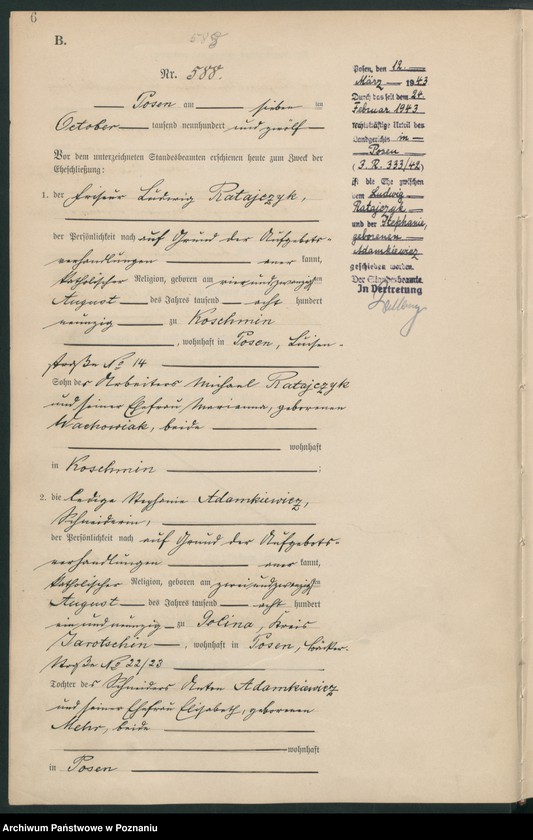 6
B.
588
Nr. 588.
Posen am sieben ten
October tausend neunhundert und zwölf
Vor dem unterzeichneten Standesbeamten erschienen heute zum Zweck der
Eheschließung:
1. der Friseur Ludwig Ratajczyk,
der Persönlichkeit nach auf Grund der Aufgebots-
verhandlungen aner kannt,
katholischer Religion, geboren am vierundzwanzigsten
August des Jahres tausend acht hundert
neunzig zu Koschmin
, wohnhaft in Posen, Luisen-
straße No 14
Sohn des Arbeiters Michael Ratajczyk
und seiner Ehefrau Marianna, geborenen
Wachowiak, beide
wohnhaft
in Koschmin ;
2. die ledige Stephanie Adamkiewicz,
Schneiderin,
der Persönlichkeit nach auf Grund der Aufgebots-
verhandlungen aner kannt,
katholischer Religion, geboren am zweiundzwanzigsten
August des Jahres tausend acht hundert
einundneunzig zu Golina, Kreis
Jarotschin , wohnhaft in Posen, Bäcker-
straße No 22/23
Tochter des Schneiders Anton Adamkiewicz
und seiner Ehefrau Elisabeth, geborenen
Mehr, beide
wohnhaft
in Posen
Posen, den 12.
März 1943
Durch das seit dem 24.
Februar 1943
rechtskräftige Urteil des
Landgerichts in
Posen
(3. R. 333/42)
ist die Ehe zwischen
dem Ludwig
Ratajczyk
und der Stephanie,
geborenen
Adamkiewicz
geschieden worden.
Der Standesbeamte.
In Vertretung
Archiwum Państwowe w Poznaniu